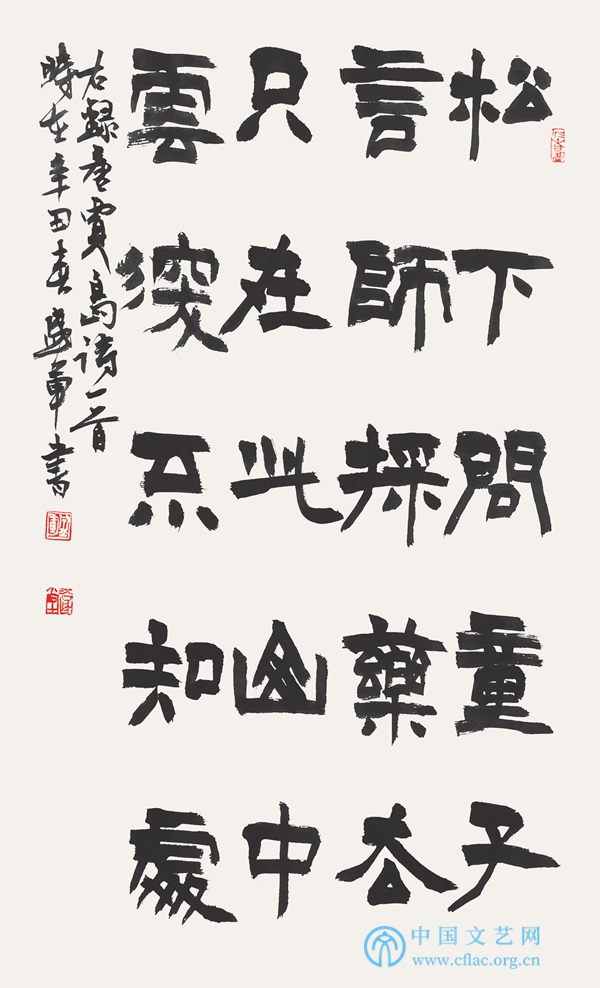 松下問童子
言師採藥去
只在此山中
雲深不知處
右錄唐賈島詩一首
時在辛丑春盛軍書
中国文艺网
www.cflac.org.cn